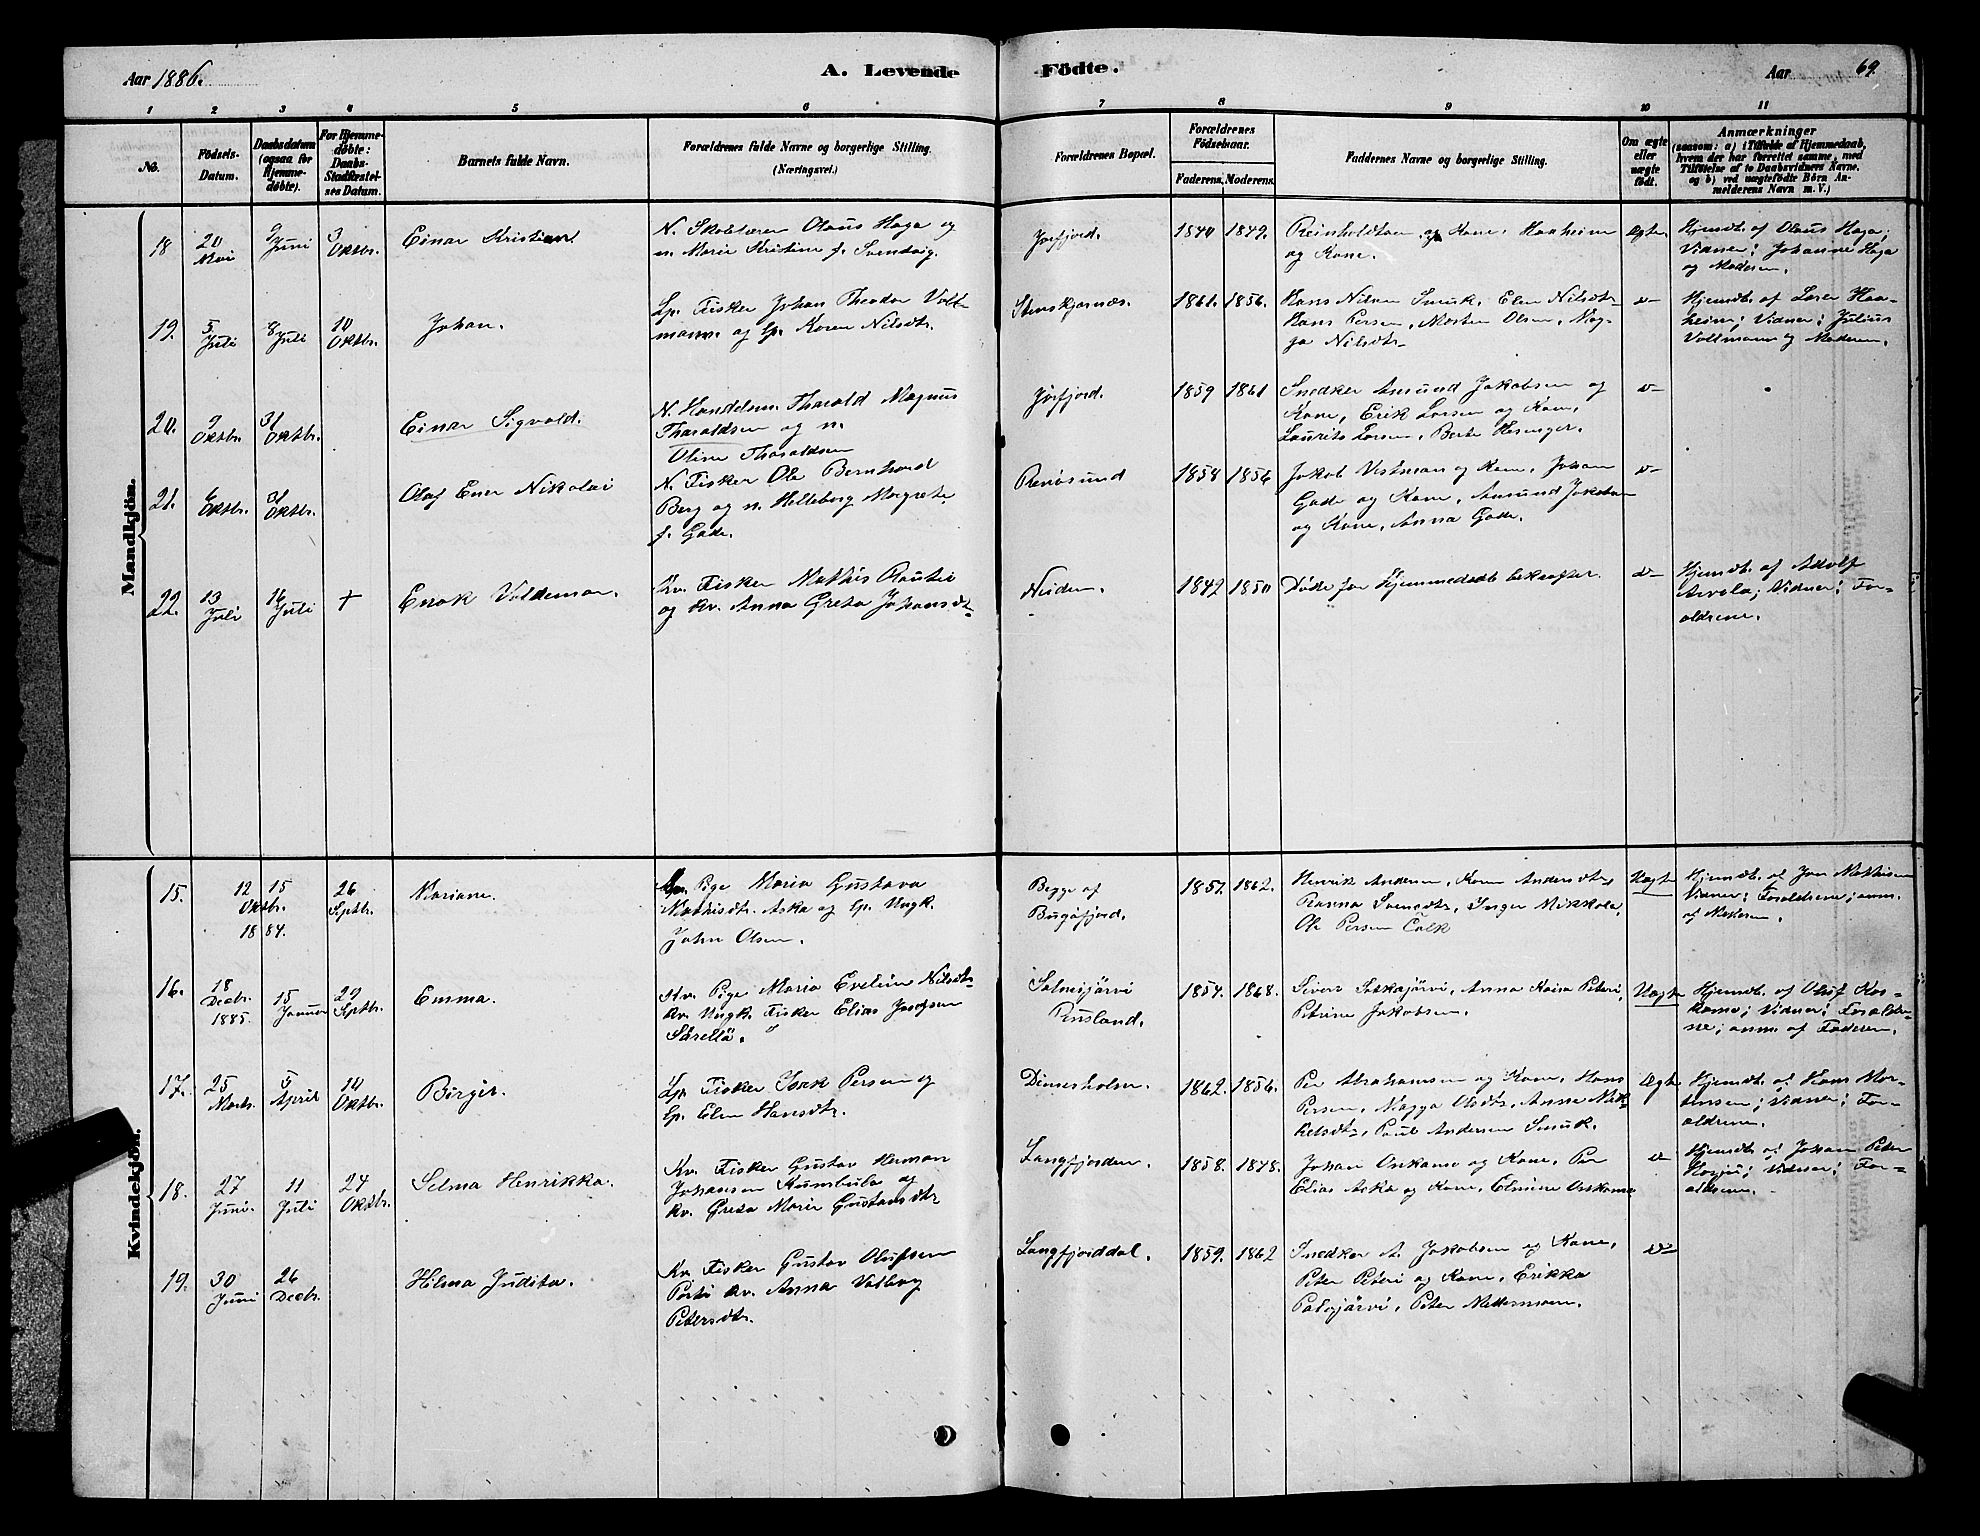 Aar 1886.
A. Levende
Födte.
Aar
69.
1 2 3 4 5 6 7 8 9 10 11
No.
Födsels-
Datum.
Daabsdatum
(ogsaa for
Hjemme-
döbte).
For Hjemme-
döbte:
Daabs-
Stadfæstel-
ses Datum.
Barnets fulde Navn.
Forældrenes fulde Navne og borgerlige Stilling.
(Næringsvei.)
Forældrenes Bopæl.
Forældrenes
Födselsaar.
Faderens. Moderens.
Faddernes Navne og borgerlige Stilling.
Om ægte
eller
uægte
födt.
Anmærkninger
(saasom: a) i Tilfælde af Hjemmedaab,
hvem der har forrettet samme, med
Tilföielse af to Daabsvidners Navne,
og b) ved uægtefödte Börn An-
melderens Navn m. V.)
Mandkjön.
18
20
Mai
9
Juni
3
Oktbr.
Einar Kristian.
N. Skolelærer Olaus Haga og
n. Marie Kristine f. Svendsvig.
Jarfjord.
1840
1849.
Reinholdtsen og Kone, Haaheim
og Kone.
Ægte.
Hjemdt. af Olaus Haga;
Vidner: Johanne Haga
og Moderen.
19.
5
Juli
8
Juli
10
Oktbr.
Johan.
Lp. Fisker Johan Theodor Volt-
mann og lp. Karen Nilsdtr.
Stenskjærnæs.
1861.
1856.
Hans Nilsen Smuk, Elen Nilsdtr
Hans Persen, Morten Olsen, Mag-
ga Nilsdtr
d—
Hjemdt. af Lærer Haa-
heim; Vidner: Julius
Voltmann og Moderen.
20.
9
Oktbr.
31
Oktbr.
Einar Sigvald.
N. Handelsm. Tharald Magnus
Tharaldsen og n.
Oline Tharaldsen
Jarfjord.
1859
1861
Snedker Amund Jakobsen og
Kone, Erik Larsen og Kone,
Laurits Larsen, Berte Hesenger.
d—
21.
6
Oktbr.
31
Oktbr.
Olaf Ener Nikolai
N. Fisker Ole Bernhard
Berg og n. Helleborg Margrete
f. Gade.
Renøsund
1854
1856
Jakob Vestman og Kone, Johan
Gade og Kone, Amund Jakobsen
og Kone, Anna Gade.
d—
22.
13
Juli
16
Juli
+
Enok Valdemar.
Kv. Fisker Mathis Rautio
og kv. Anna Greta Johansdtr
Neiden.
1842
1850
Døde før Hjemmedaab bekræftet.
d—
Hjemdt. af Adolf
Arvola; Vidner: For-
ældrene.
Kvindekjön.
15.
12
Oktbr.
1884.
15
26
Septbr.
Mariane.
Lp. Pige Maria Gustava
Mathisdtr. Aska og lp. Ungk.
John Olsen.
Begge af
Bugøfjord.
1857.
1862.
Henrik Andersen, Karen Andersdtr
Ranna Larsedtr, Inger Mikkola,
Ole Persen Calk
Uægte
Hjemdt. af Jon Mathisen
Vidner: Forældrene; anm.
af Moderen.
16.
18
Decbr.
1885.
15
Januar
29
Septbr.
Emma.
Kv. Pige Maria Eveline Nilsdtr
kv. Ungk. Fisker Elias Josefsen
Särellä.
Salmijärvi
Rusland.
1854.
1868.
Siver Saskajärvi, Anna Kaisa Peteri,
Petrine Jakobsen.
Uægte
Hjemdt. af Oluf Kos-
kamo; Vidner: Forældre-
ne; anm. af Faderen.
17.
25
Marts.
5
April
10
Oktbr.
Birgit.
Lp. Fisker Isak Persen og
lp. Elen Hansdtr.
Dinesholm.
1862.
1856.
Per Abrahamsen og Kone, Hans
Persen, Magga Olsdtr, Anna Mik-
kelsdtr, Paul Andersen Smuk.
Ægte
Hjemdt. af Hans Mor-
tensen; Vidner: For-
ældrene.
18.
27
Juni.
11
Juli
24
Oktbr.
Selma Henrikka.
Kv. Fisker Gustav Herman
Johansen Kumbula og
kv. Greta Maria Gustavsdtr
Langfjorden.
1858.
1848.
Johan Oskamo og Kone, Per
Elias Aska og Kone, Elmine Oskamo
d—
Hjemdt. af Johan Peter
Harju; Vidner: For-
ældrene.
19.
30
Juni
26
Decbr.
Hilma Judita.
Kv. Fisker Gustav Olufsen
Porti kv. Anna Valborg
Petersdtr.
Langfjorddal.
1859.
1862
Snedker A. Jakobsen og Kone,
Peter Peteri og Kone, Erikka
Palojärvi, Peter Mettermoen.
d—